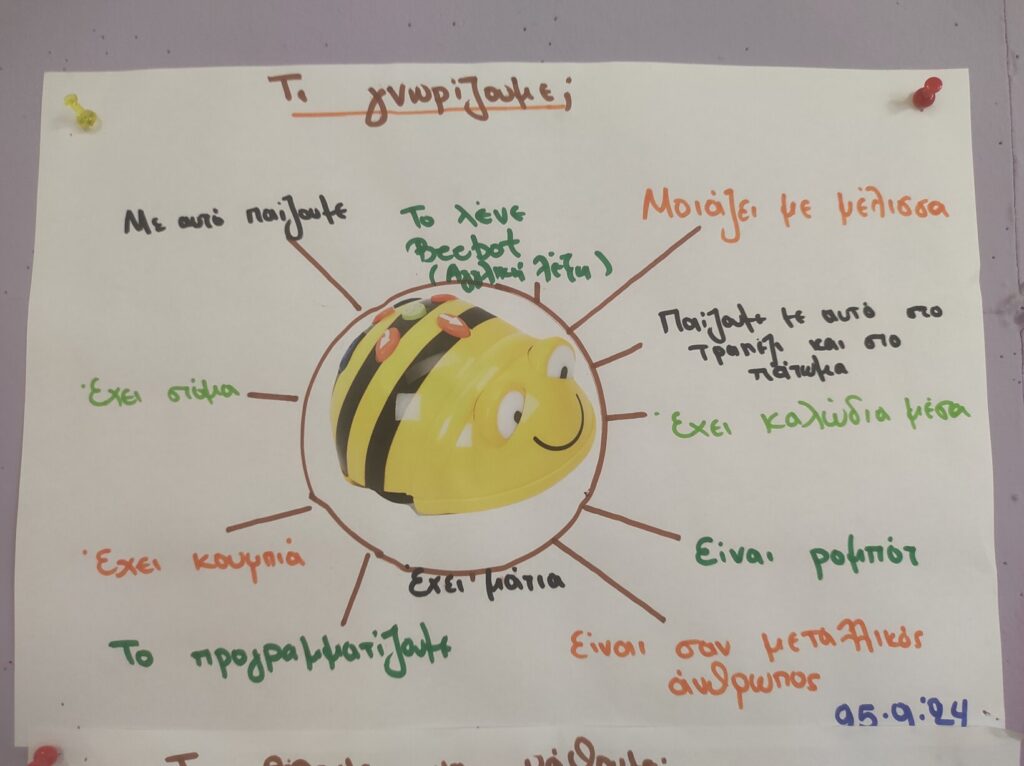 Τι γνωρίζουμε;
Με αυτό παίζουμε
Το λένε
Beebot
(Αγγλική λέξη)
Μοιάζει με μέλισσα
Παίζουμε με αυτό στο
τραπέζι και στο
πάτωμα
Έχει στόμα
Έχει καλώδια μέσα
Έχει κουμπιά
Έχει μάτια
Είναι ρομπότ
Το προγραμματίζουμε
Είναι σαν μεταλλικός
άνθρωπος